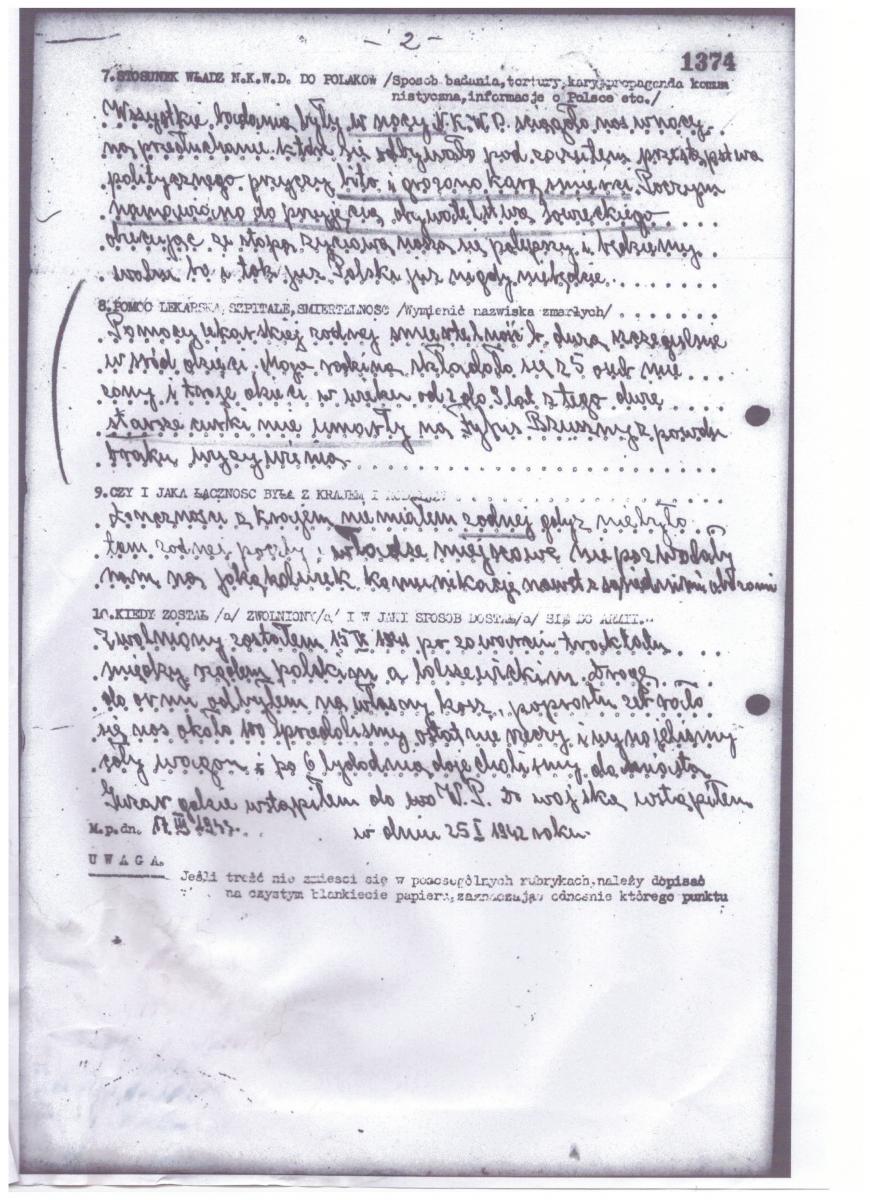 - 2 -
1374
7.STOSUNEK WŁADZ N.K.W.D. DO POLAKÓW /Sposób badania,tortury,kary,propaganda komu
nistyczna,informacje o Polsce etc./
Wszystkie badania były w nocy N.K.W.D. sciągało nas w nocy
na przesłuchanie które się odbywało pod zarzutem przestępstwa
politycznego przyczy bito i grożono karą śmierci. Poczym
namawiano do przyjęcia obywatelstwa Sowieckiego
obiecując ze stopa życiowa nasza się polepszy i będziemy
wolni bo i tak już Polski już nigdy niebędzie.
8.POMOC LEKARSKA, SZPITALE,SMIERTELNOSC /Wymienić nazwiska zmarłych/
Pomocy lekarskiej żodnej smiertelność b. duża szczegulnie
wsród dzieci. Moja rodzina składała się z 5 osub mie
żony i troje dzieci w wieku od 2 do 9 lat z tego dwie
starsze curki mie umarły na Tyfus Brzuszny z powodu
braku wyzywienia
9.CZY I JAKA ŁĄCZNOSC BYŁA Z KRAJEM I
Łoncznosci z krajem niemiałem żodnej gdyż niebyło
tam żodnej poczty, władze miejscowe nie pozwalały
nam na jokąkolwiek komunikację nawet z sąsiednimi obozami
10.KIEDY ZOSTAŁ /a/ ZWOLNIONY/a/ I W JAKI SPOSOB DOSTAŁ/a/ SIĘ DO ARMII.
Zwolniony zostałem 15 IX 1941 po zawarciu traktatu
między rządem polskim a bolszewickim. Drogę
do armi odbyłem na własny kosz, poprostu zebrało
się nas około 100 sprzedaliśmy ostatnie rzeczy i wynajeliśmy
cały wagon i po 6 tygodniach dojechaliśmy do miasta
Guzar gdzie wstąpiłem do W.P. to wojska wstąpiłem
M.p.dn. 17 III 1943. w dniu 25 I 1942 roku
U W A G A.
Jeśli treść nie zmiesci się w poszczególnych rubrykach,należy dopisać
na czystym blankiecie papieru,zaznaczając odnośnie którego punktu